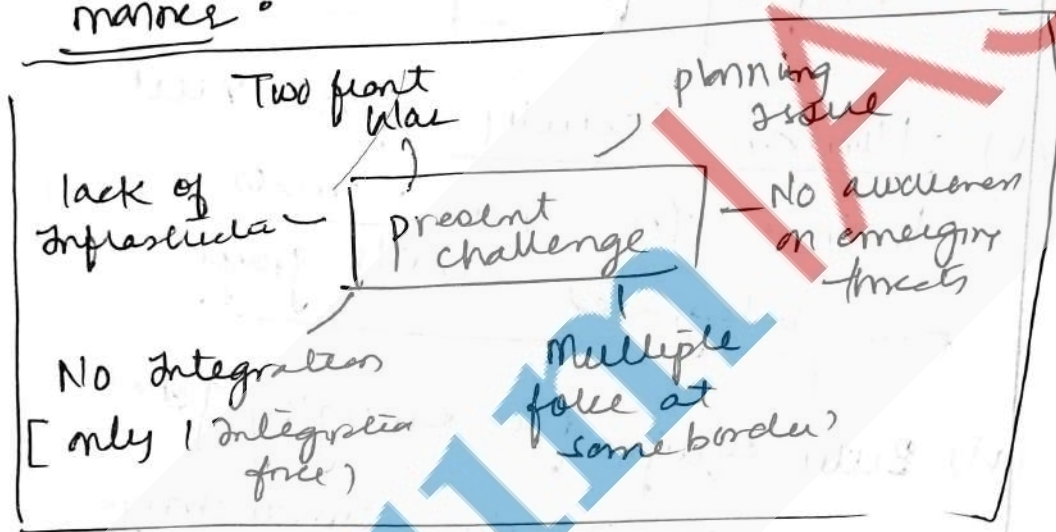 manner :
Two front
War
planning
issue
lack of
Infrastructu
present
challenge
No awareness
on emerging
threats
No Integration
[ only 1 Integration
force )
Multiple
force at
same border
um IA